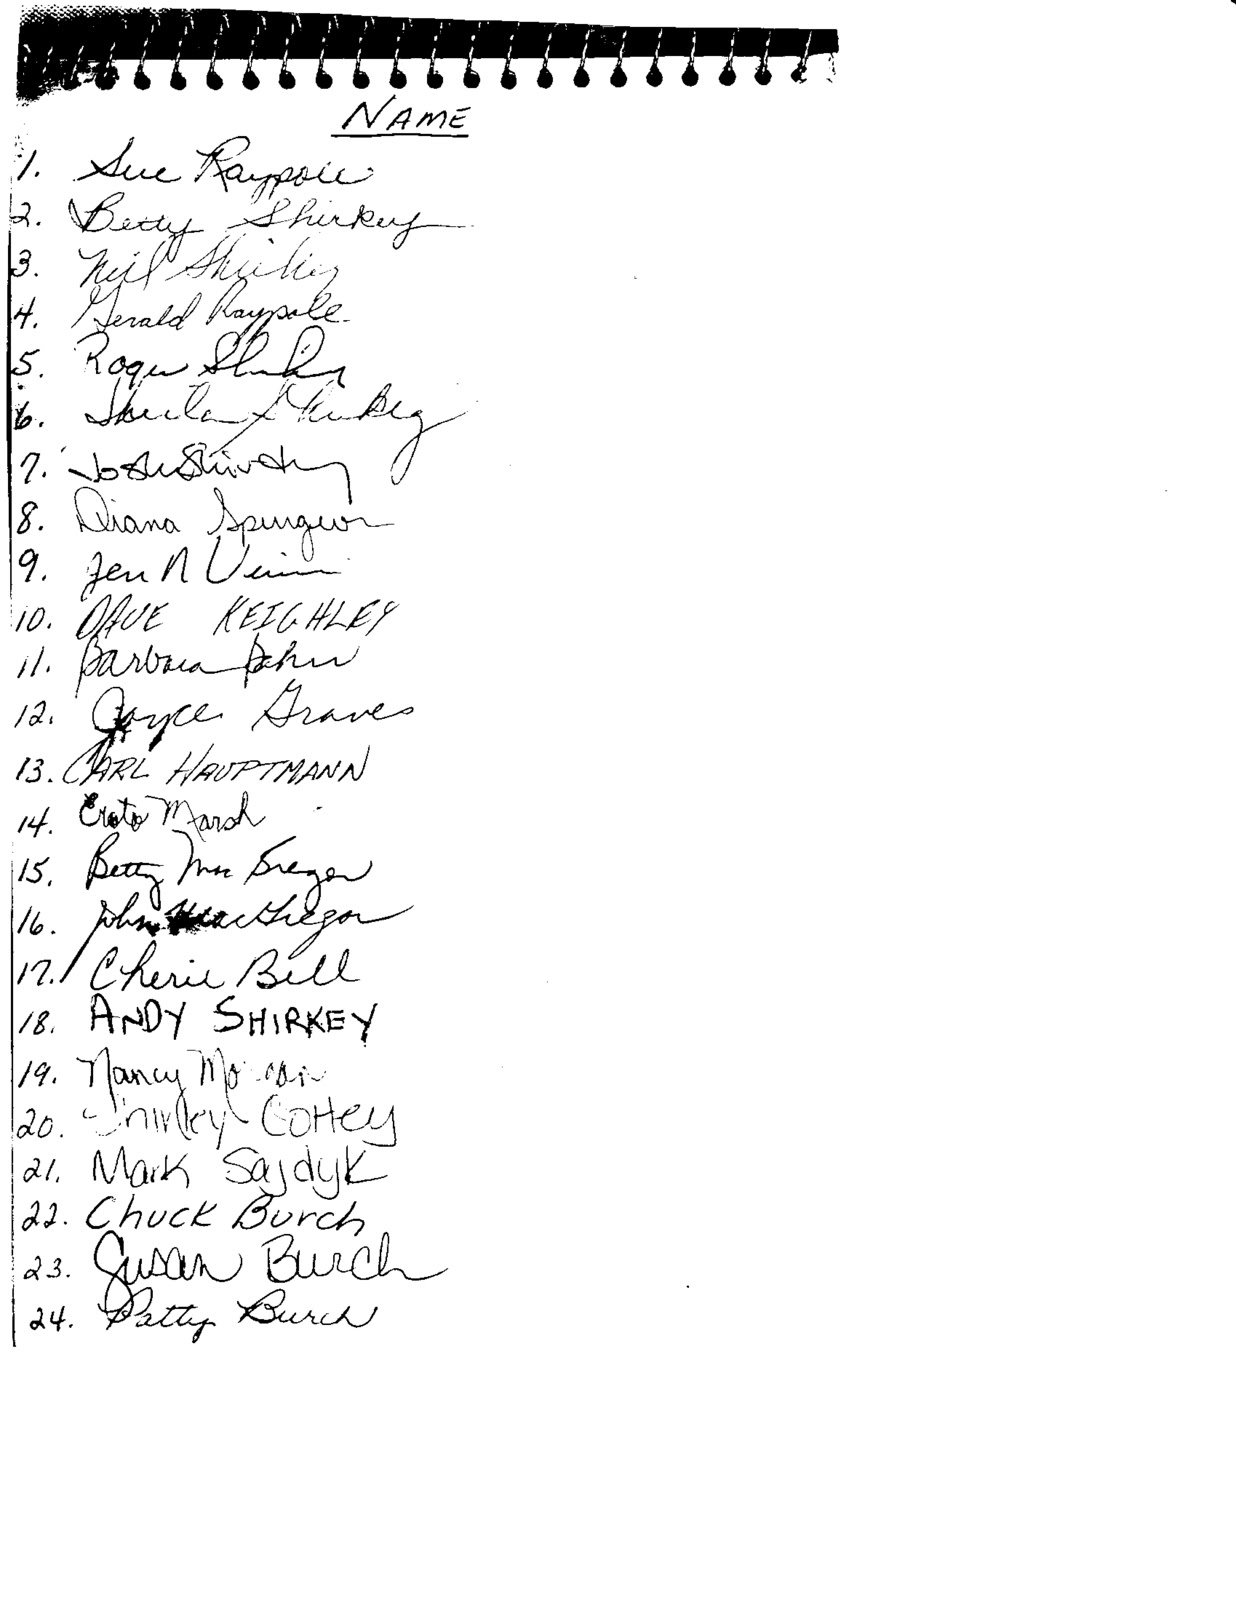 NAME
1. Sue Raypole
2. Betty Shirkey
3. Neil Shirkey
4. Gerald Raypole
5. Roger
6. Sheila Shirkey
7. Josh Shirkey
8. Diana Spurgeon
9. Jeri N
10. DAVE KEIGHLEY
11. Barbara
12. Joyce Graves
13. CARL HAUPTMANN
14. Marsh
15. Betty MacGregor
16. John MacGregor
17. Cherie Bell
18. ANDY SHIRKEY
19. Nancy
20. Shirley Cottey
21. Mark Sajdyk
22. Chuck Burch
23. Susan Burch
24. Patty Burch